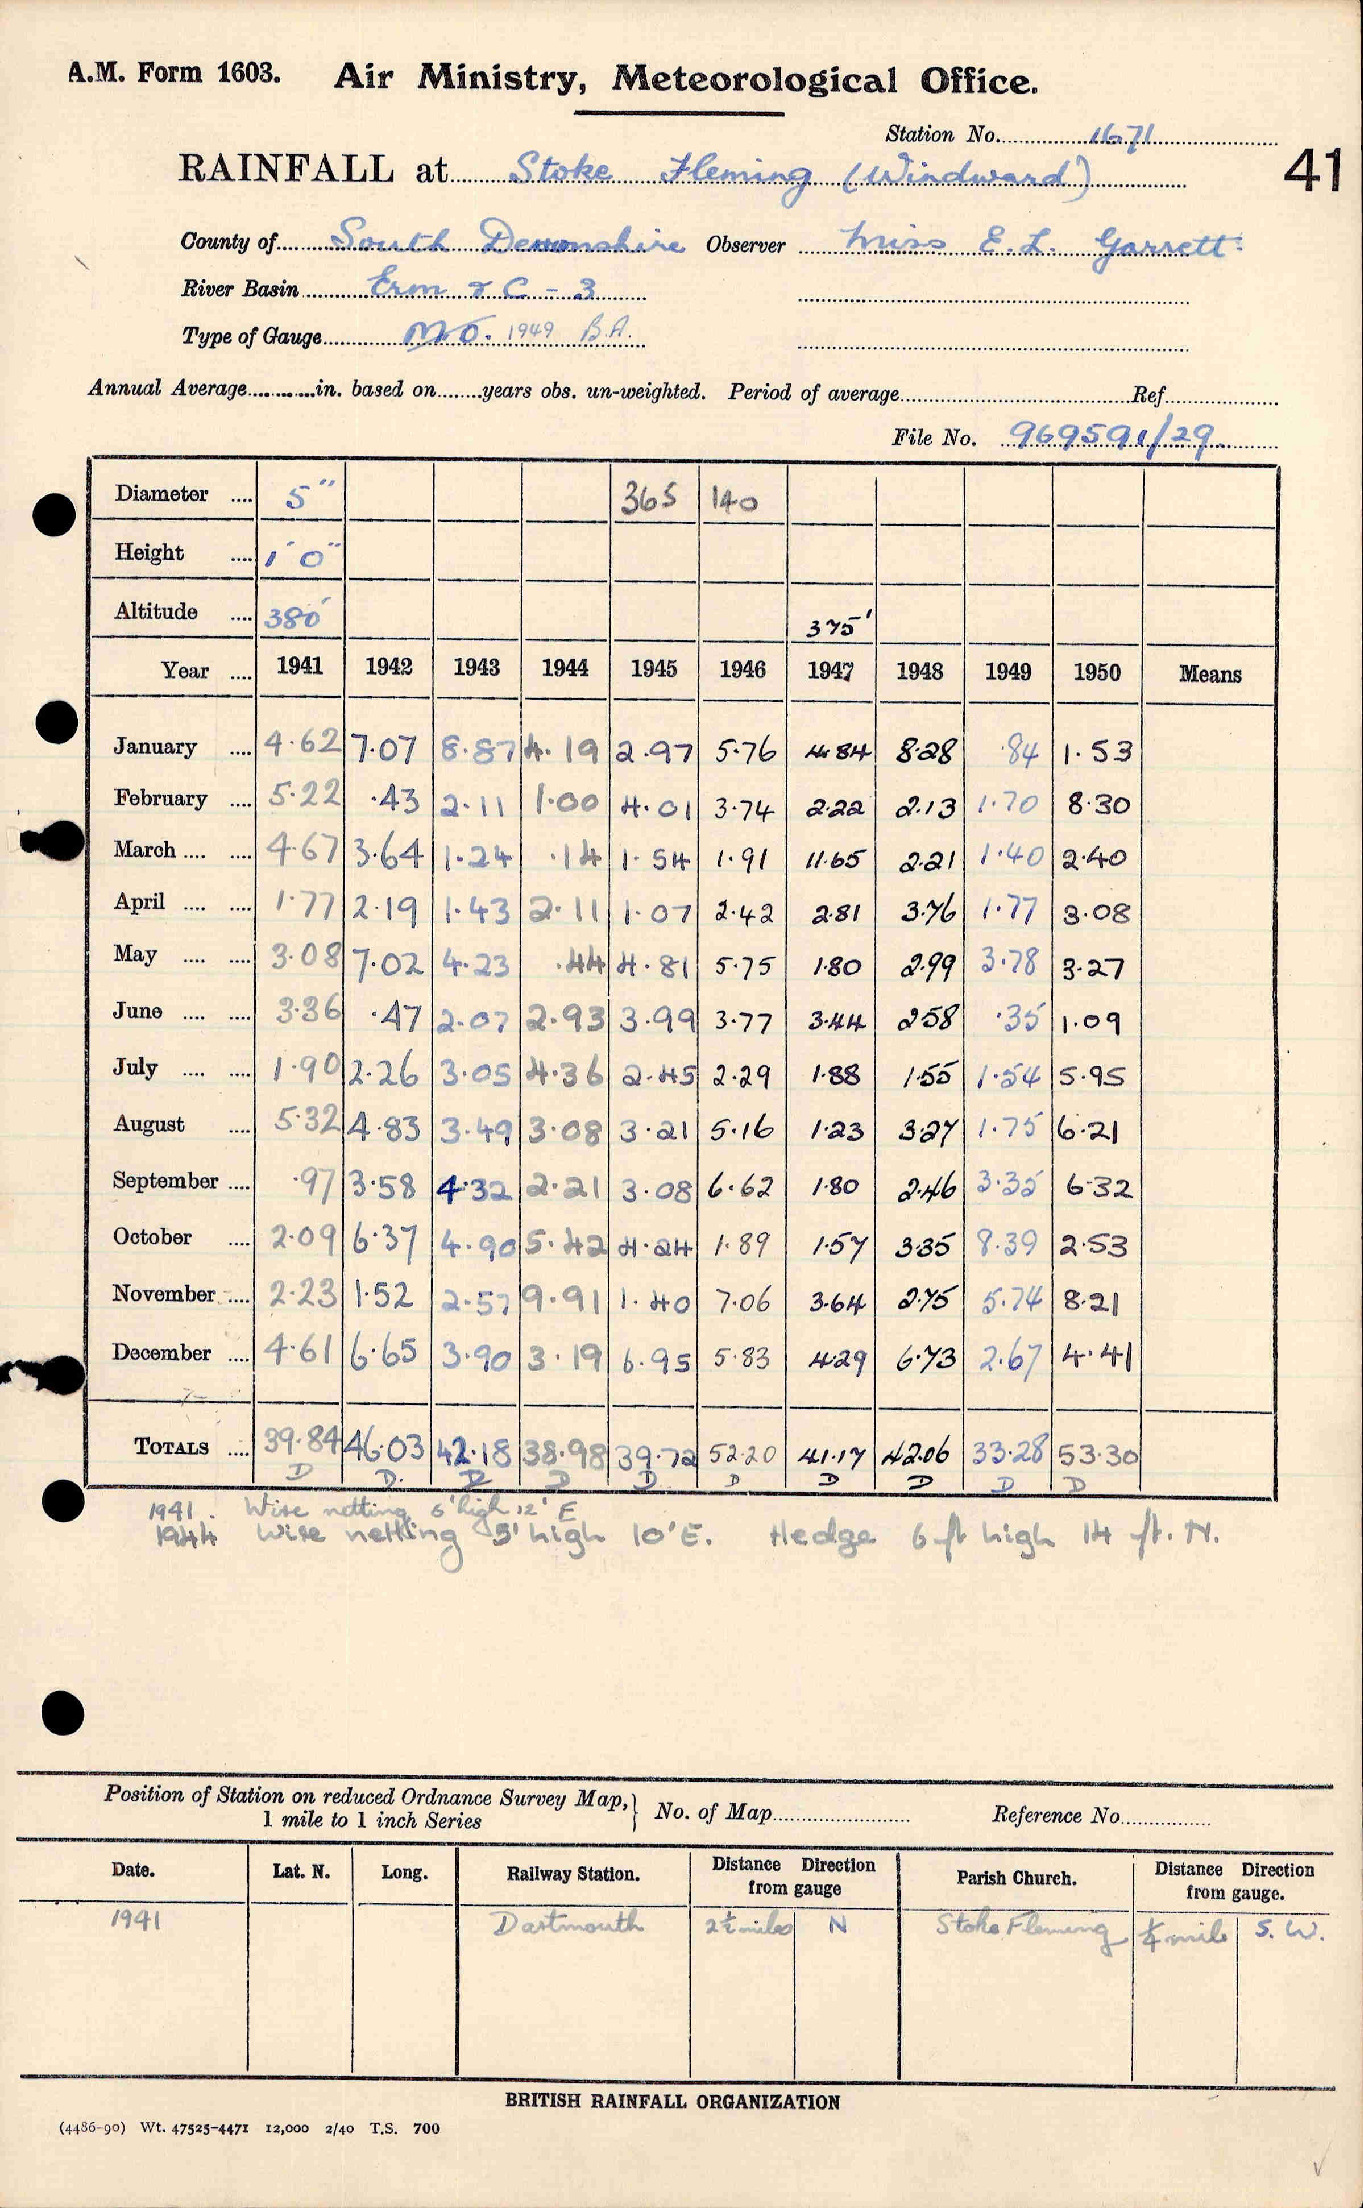 A.M. Form 1603. Air Ministry, Meteorological Office.
Station No. 1671
41
RAINFALL at Stoke Fleming (Windward)
County of South Devonshire Observer Miss E. L. Garrett
River Basin Erm & C - 3
Type of Gauge M.O. 1949 B.A.
Annual Average in. based on years obs. un-weighted. Period of average Ref
File No. 969591/29
Diameter 5" 365 140
Height 1' 0"
Altitude 380' 375'
Year 1941 1942 1943 1944 1945 1946 1947 1948 1949 1950 Means
January 4.62 7.07 8.87 4.19 2.97 5.76 4.84 8.28 .84 1.53
February 5.22 .43 2.11 1.00 4.01 3.74 2.22 2.13 1.70 8.30
March 4.67 3.64 1.24 .14 1.54 1.91 11.65 2.21 1.40 2.40
April 1.77 2.19 1.43 2.11 1.07 2.42 2.81 3.76 1.77 3.08
May 3.08 7.02 4.23 .44 4.81 5.75 1.80 2.99 3.78 3.27
June 3.36 .47 2.07 2.93 3.99 3.77 3.44 2.58 .35 1.09
July 1.90 2.26 3.05 4.36 2.45 2.29 1.88 1.55 1.54 5.95
August 5.32 4.83 3.49 3.08 3.21 5.16 1.23 3.27 1.75 6.21
September .97 3.58 4.32 2.21 3.08 6.62 1.80 2.46 3.35 6.32
October 2.09 6.37 4.90 5.42 4.24 1.89 1.57 3.35 8.39 2.53
November 2.23 1.52 2.57 9.91 1.40 7.06 3.64 2.75 5.74 8.21
December 4.61 6.65 3.90 3.19 6.95 5.83 4.29 6.73 2.67 4.41
TOTALS 39.84 46.03 42.18 38.98 39.72 52.20 41.17 42.06 33.28 53.30
D D. D D D D D D D D
1941. Wire netting 6' high 12' E
1944 Wire netting 5' high 10' E. Hedge 6 ft high 14 ft. N.
Position of Station on reduced Ordnance Survey Map, 1 mile to 1 inch Series No. of Map Reference No.
Date. Lat. N. Long. Railway Station. Distance Direction from gauge Parish Church. Distance Direction from gauge.
1941 Dartmouth 2½ miles N Stoke Fleming ¼ mile S. W.
BRITISH RAINFALL ORGANIZATION
(4486-90) Wt. 47525-4471 12,000 2/40 T.S. 700